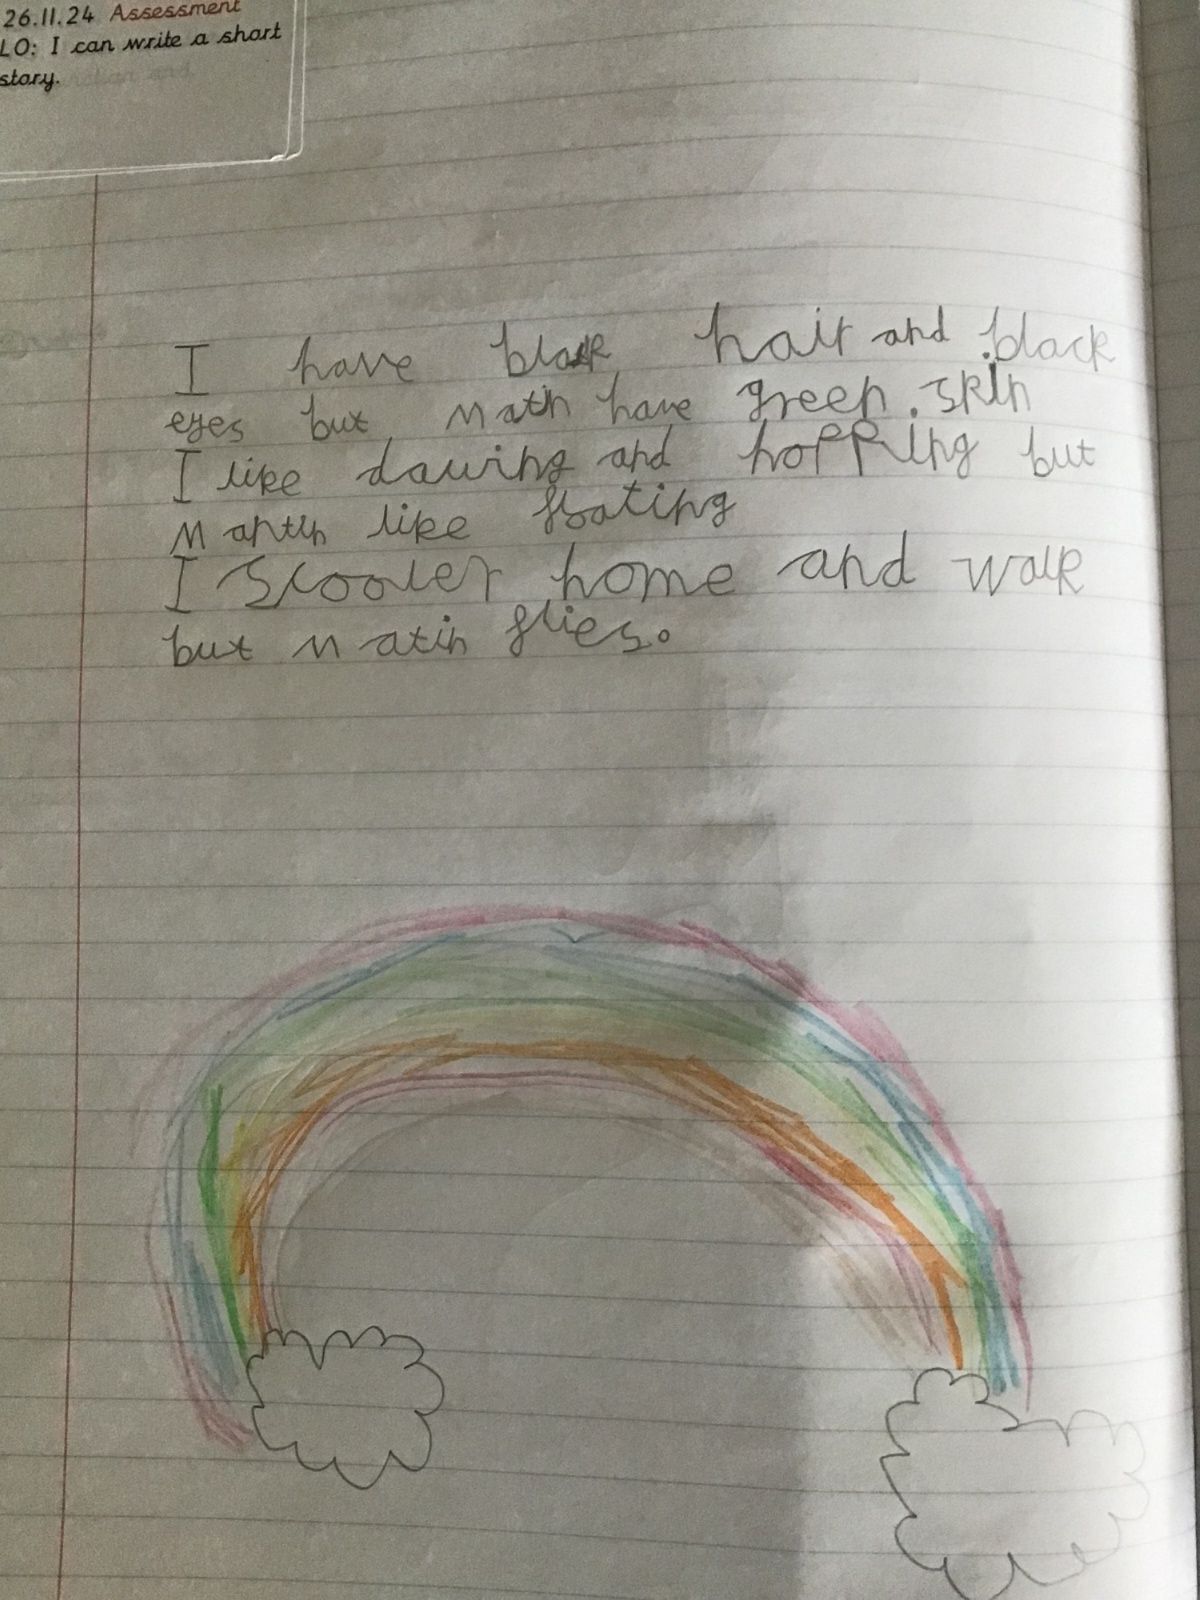 26.11.24 Assessment
LO: I can write a short
story.
I have black hair and black
eyes but Matin have green . skin
I like dawing and hopping but
Mantin like floating
I scooter home and walk
but Matin flies.